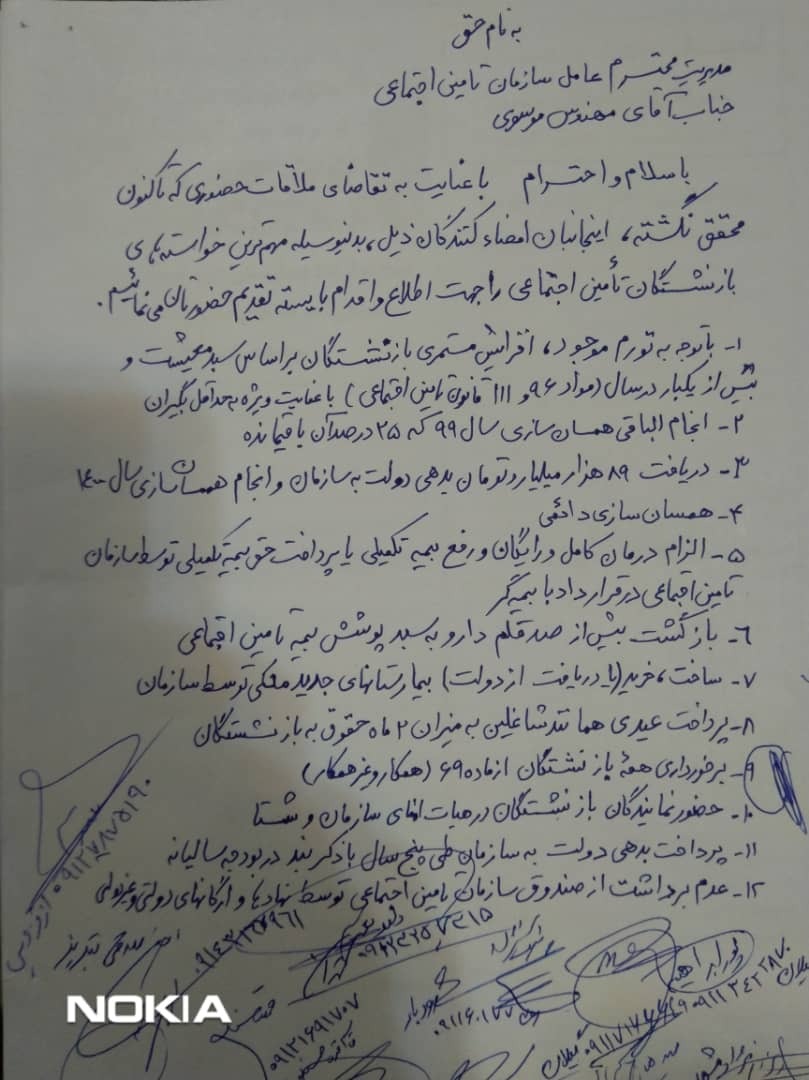 به نام حق
مدیریت محترم عامل سازمان تامین اجتماعی
جناب آقای مهندس موسوی
با سلام و احترام با عنایت به تقاضای ملاقات حضوری که تاکنون
محقق نگشته، اینجانبان امضاء کنندگان ذیل، بدنیوسیله مهم‌ترین خواسته‌های
بازنشستگان تأمین اجتماعی را جهت اطلاع و اقدام بایسته تقدیم حضورتان می‌نمائیم.
۱- باتوجه به تورم موجود، افزایش مستمری بازنشستگان براساس سبد معیشت و
بیش از یکبار در سال (مواد ۹۶ و ۱۱۱ قانون تامین اجتماعی) با عنایت ویژه به حداقل بگیران
۲- انجام الباقی همسان سازی سال ۹۹ که ۲۵ درصد آن باقیمانده
۳- دریافت ۸۹ هزار میلیارد تومان بدهی دولت به سازمان و انجام همسان سازی سال ۱۴۰۰
۴- همسان سازی دائمی
۵- الزام درمان کامل و رایگان و رفع بیمه تکمیلی یا پرداخت حق بیمه تکمیلی توسط سازمان
تامین اجتماعی در قرارداد با بیمه‌گر
۶- بازگشت بیش از صد قلم دارو به سبد پوشش بیمه تامین اجتماعی
۷- ساخت، خرید (یا دریافت از دولت) بیمارستانهای جدید ملکی توسط سازمان
۸- پرداخت عیدی همانند شاغلین به میزان ۲ ماه حقوق به بازنشستگان
۹- برخورداری همهٔ بازنشستگان از ماده ۶۹ (همکار و غیرهمکار)
۱۰- حضور نمایندگان بازنشستگان در هیات امنای سازمان و شستا
۱۱- پرداخت بدهی دولت به سازمان طی پنج سال با ذکر بند در بودجه سالیانه
۱۲- عدم برداشت از صندوق سازمان تامین اجتماعی توسط نهادها و ارگانهای دولتی و غیردولتی
۰۹۱۲۷۸۷۵۱۹۰
تبریز
گیلان
۰۹۱۲۱۶۹۱۷۰۷
گیلان
NOKIA